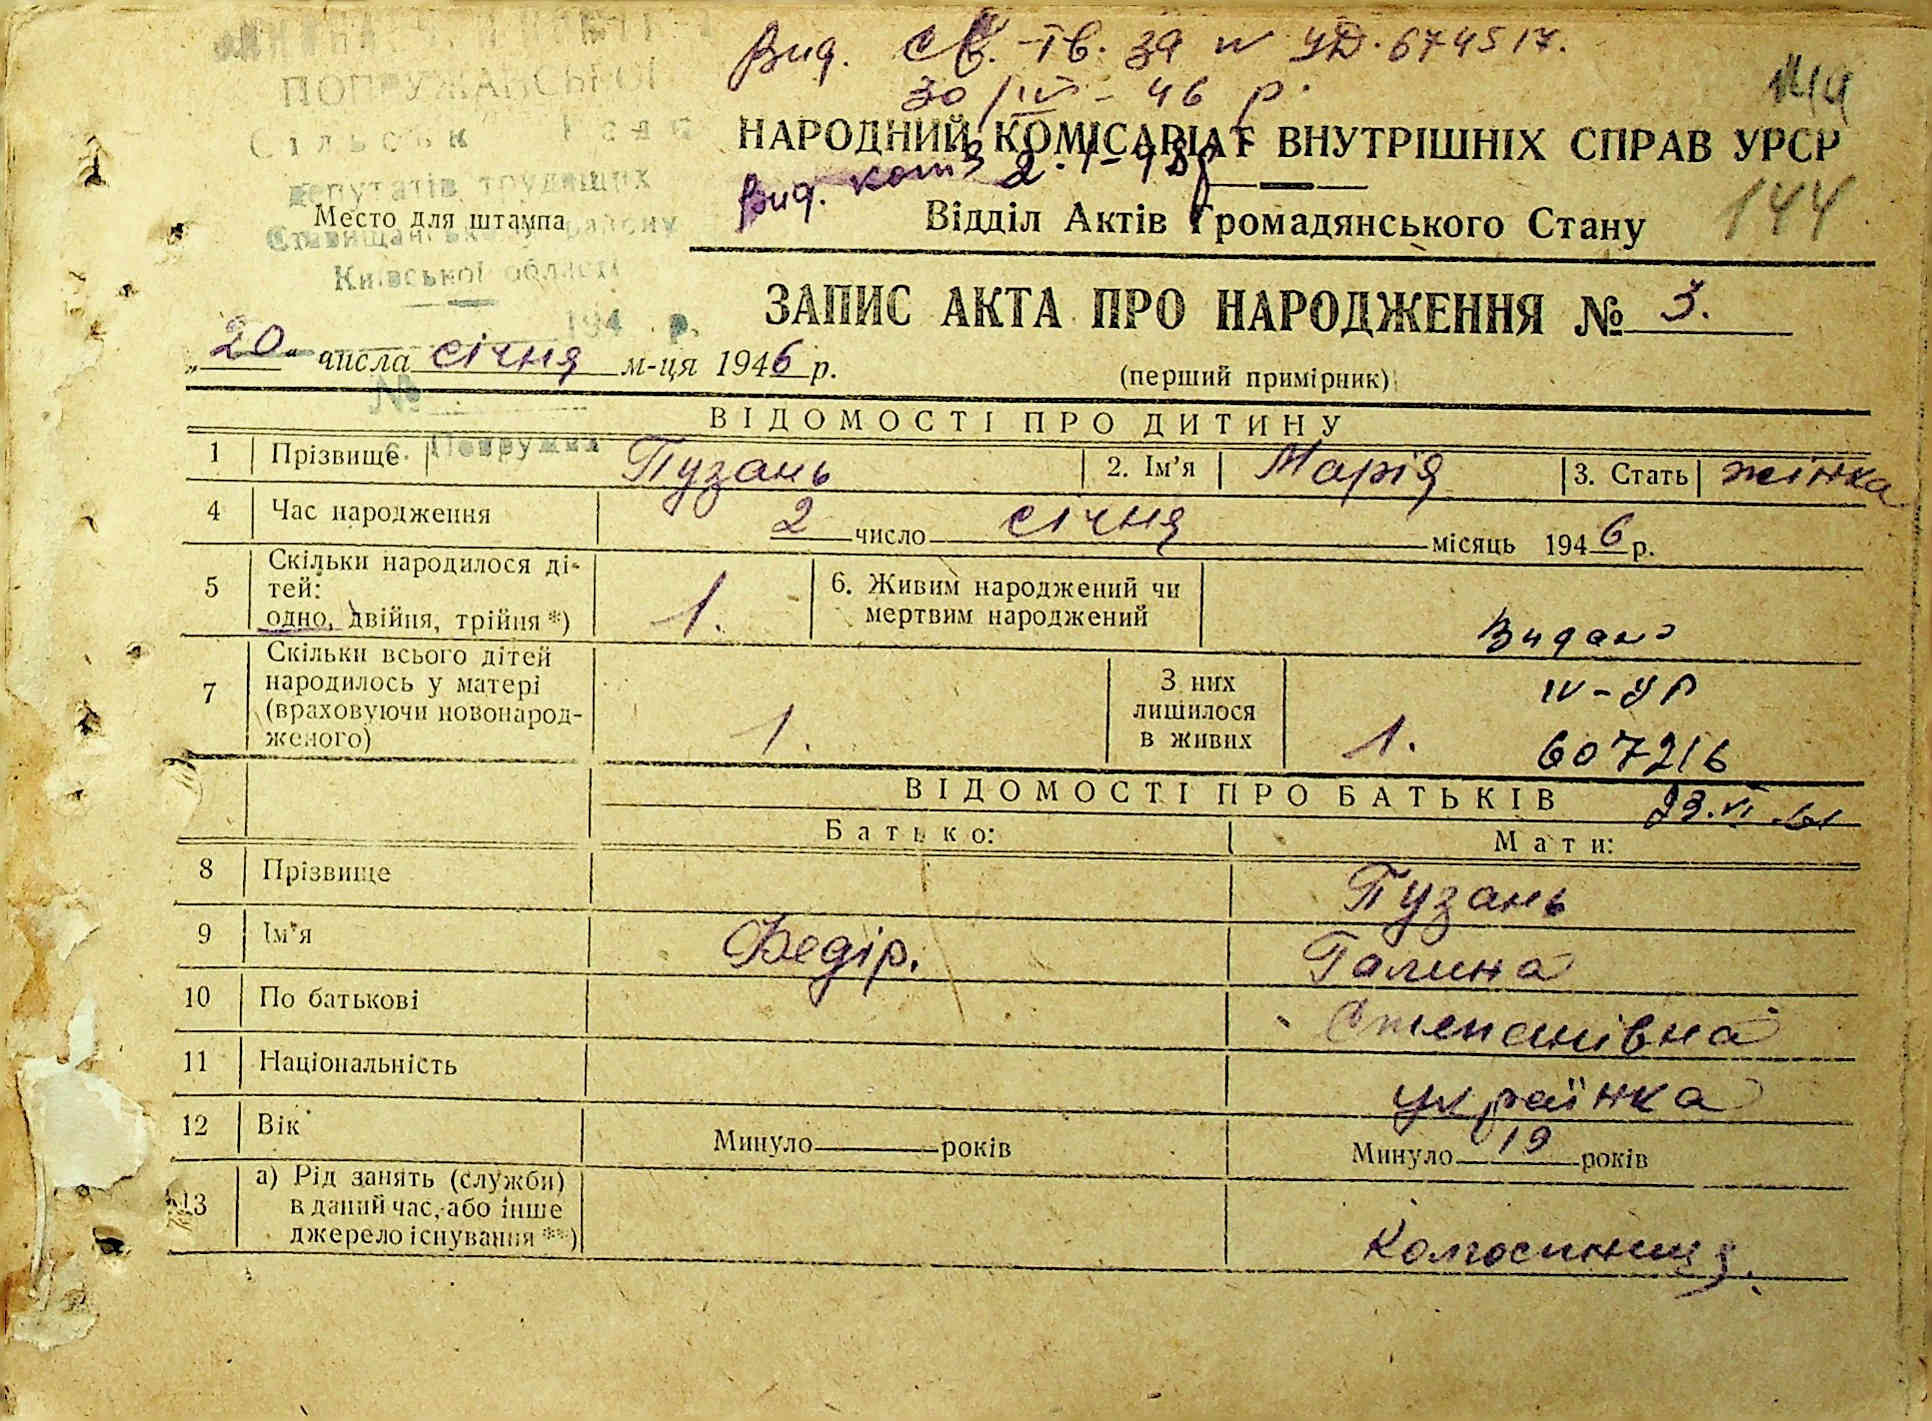 Вид. св.-тв. за № УД. 674517.
30/IV - 46 р.
144
НАРОДНИЙ КОМІСАРІАТ ВНУТРІШНІХ СПРАВ УРСР
Вид. 2.
144
Відділ Актів Громадянського Стану
ПОПРУЖАНСЬКОЇ
Сільськ Рад
депутатів трудящих
Место для штампа
Ставищанського району
Київської області
194 р.
ЗАПИС АКТА ПРО НАРОДЖЕННЯ № 3.
„20“ числа січня м-ця 1946 р.
(перший примірник)
№
ВІДОМОСТІ ПРО ДИТИНУ
с. Попружна
1 Прізвище Пузань 2. Ім'я Марія 3. Стать жінка
4 Час народження 2 число січня місяць 1946 р.
5 Скільки народилося ді-
тей:
одно, двійня, трійня *) 1.
6. Живим народжений чи
мертвим народжений
Видано
IV-УР
607216
23.VI.61
7 Скільки всього дітей
народилось у матері
(враховуючи новонарод-
женого) 1.
З них
лишилося
в живих 1.
ВІДОМОСТІ ПРО БАТЬКІВ
Батько: Мати:
8 Прізвище Пузань
9 Ім'я Федір. Галина
10 По батькові Степанівна
11 Національність українка
12 Вік Минуло років Минуло 19 років
13 а) Рід занять (служби)
в даний час, або інше
джерело існування **) Колгоспниця.